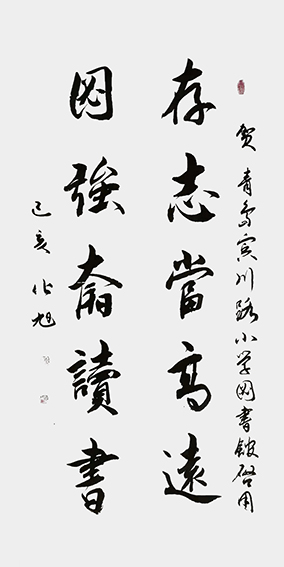 賀青島宾川路小学圖書館启用
存志當高遠
圖強奮讀書
己亥作旭